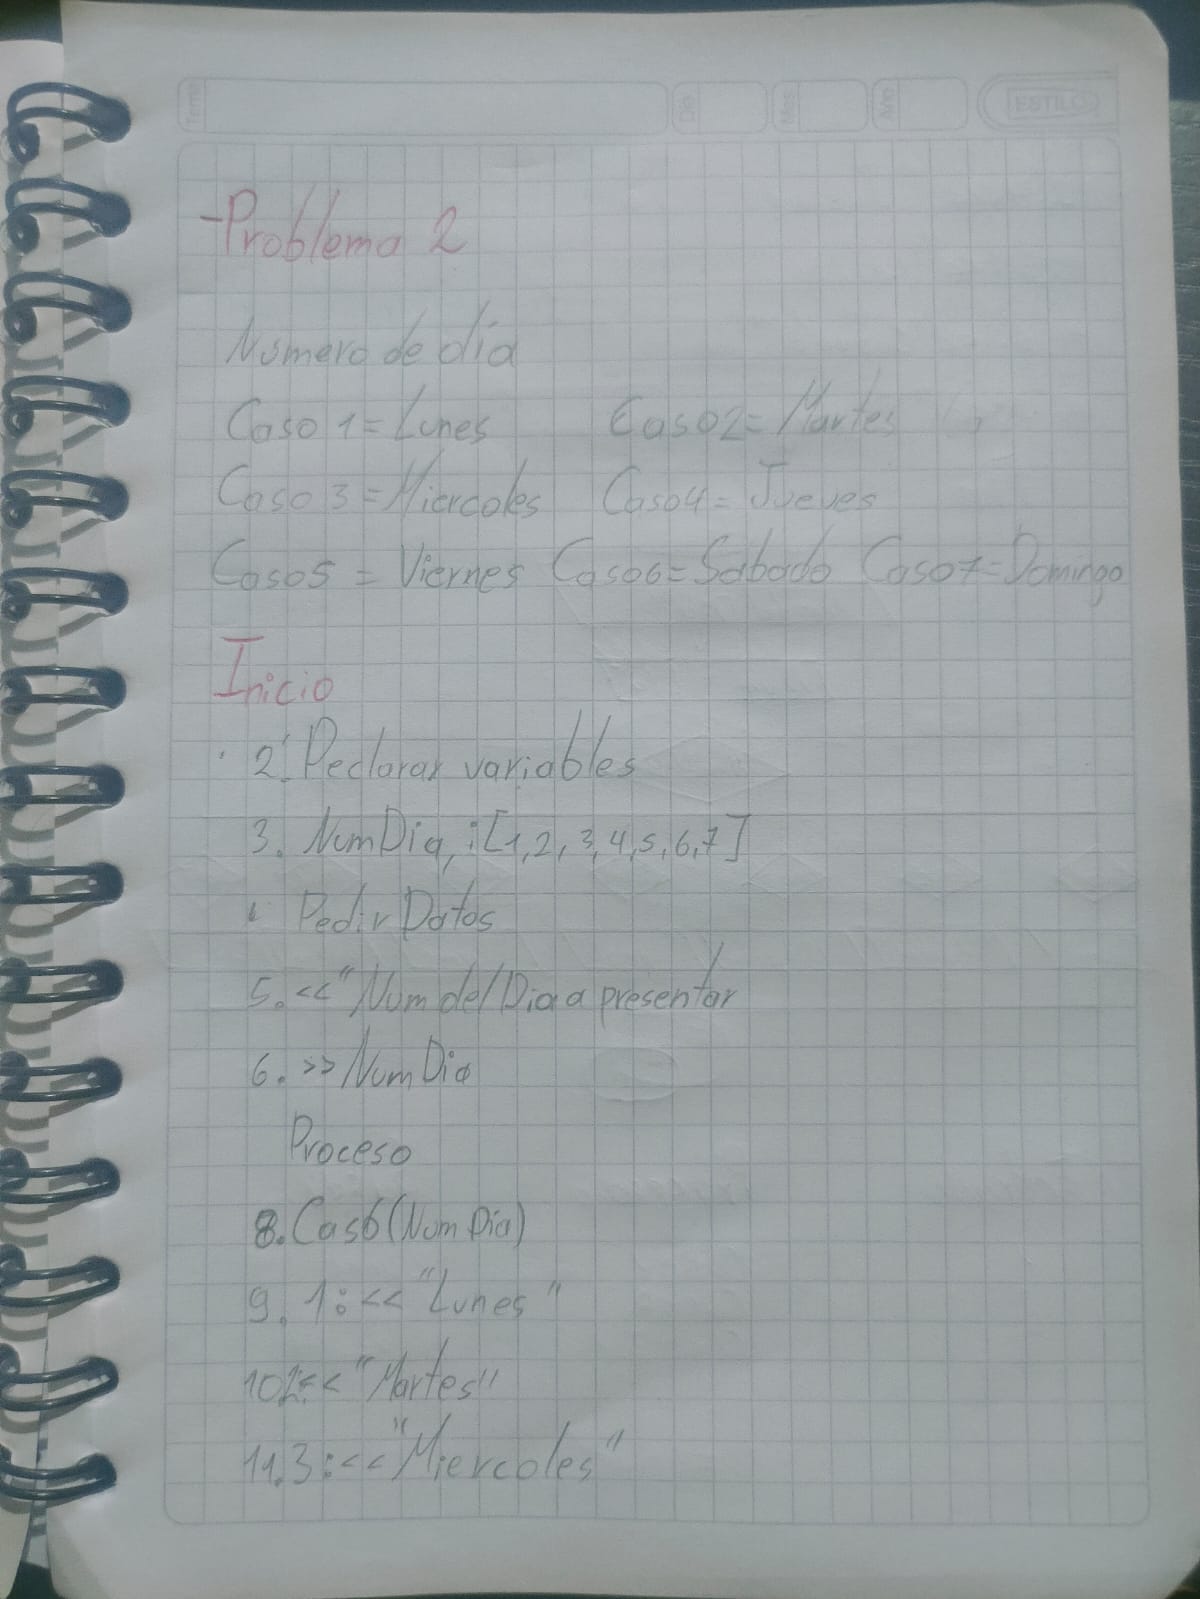 Tema Día Mes Año ESTILO
-Problema 2
Número de día
Caso 1 = Lunes Caso2 = Martes
Caso 3 = Miercoles Caso4 = Jueves
Caso5 = Viernes Caso6 = Sabado Caso7 = Domingo
Inicio
2. Declarar variables
3. NumDia, i[1,2,3,4,5,6,7]
Pedir Datos
5. << "Num del Dia a presentar
6. >> NumDia
Proceso
8. Caso (NumDia)
9. 1: << "Lunes"
10. 2: << "Martes"
11. 3: << "Miercoles"